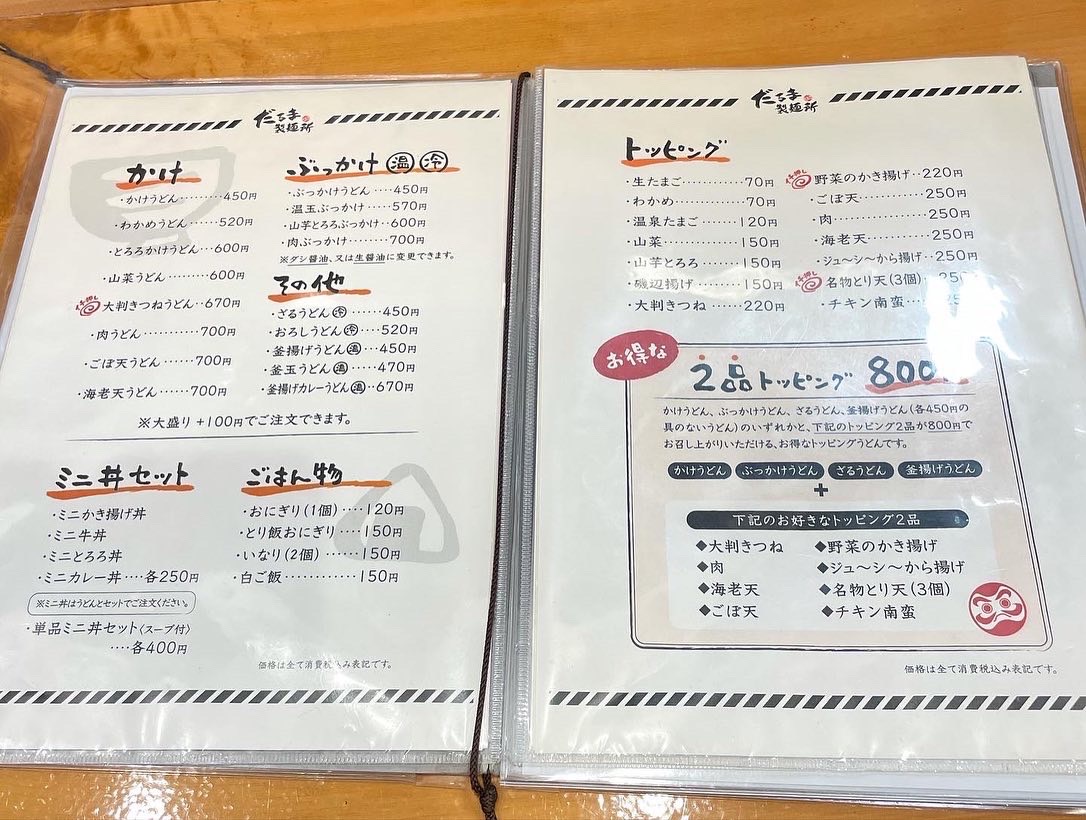 だるま製麺所
かけ
・かけうどん‥‥‥450円
・わかめうどん‥‥‥520円
・とろろかけうどん‥‥600円
・山菜うどん‥‥‥‥600円
イチ押し 大判きつねうどん‥670円
・肉うどん‥‥‥‥‥700円
・ごぼ天うどん‥‥‥700円
・海老天うどん‥‥‥700円
ぶっかけ 温 冷
・ぶっかけうどん‥‥450円
・温玉ぶっかけ‥‥‥570円
・山芋とろろぶっかけ‥600円
・肉ぶっかけ‥‥‥‥700円
※ダシ醤油、又は生醤油に変更できます。
その他
・ざるうどん冷‥‥‥450円
・おろしうどん冷‥‥520円
・釜揚げうどん温‥‥450円
・釜玉うどん温‥‥‥470円
・釜揚げカレーうどん温‥670円
※大盛り+100円でご注文できます。
ミニ丼セット
・ミニかき揚げ丼
・ミニ牛丼
・ミニとろろ丼
・ミニカレー丼‥‥各250円
※ミニ丼はうどんとセットでご注文ください。
・単品ミニ丼セット〈スープ付〉
‥‥各400円
ごはん物
・おにぎり(1個)‥‥120円
・とり飯おにぎり‥‥150円
・いなり(2個)‥‥‥150円
・白ご飯‥‥‥‥‥‥150円
価格は全て消費税込み表記です。
だるま製麺所
トッピング
・生たまご‥‥‥‥‥70円
・わかめ‥‥‥‥‥‥70円
・温泉たまご‥‥‥‥120円
・山菜‥‥‥‥‥‥‥150円
・山芋とろろ‥‥‥‥150円
・磯辺揚げ‥‥‥‥‥150円
・大判きつね‥‥‥‥220円
イチ押し 野菜のかき揚げ‥220円
・ごぼ天‥‥‥‥‥‥250円
・肉‥‥‥‥‥‥‥‥250円
・海老天‥‥‥‥‥‥250円
・ジュ〜シ〜から揚げ‥250円
イチ押し 名物とり天(3個)
・チキン南蛮
お得な
2品トッピング 800円
かけうどん、ぶっかけうどん、ざるうどん、釜揚げうどん(各450円の
具のないうどん)のいずれかと、下記のトッピング2品が800円で
お召し上がりいただける、お得なトッピングうどんです。
かけうどん ぶっかけうどん ざるうどん 釜揚げうどん
+
下記のお好きなトッピング2品
◆大判きつね ◆野菜のかき揚げ
◆肉 ◆ジュ〜シ〜から揚げ
◆海老天 ◆名物とり天(3個)
◆ごぼ天 ◆チキン南蛮
価格は全て消費税込み表記です。